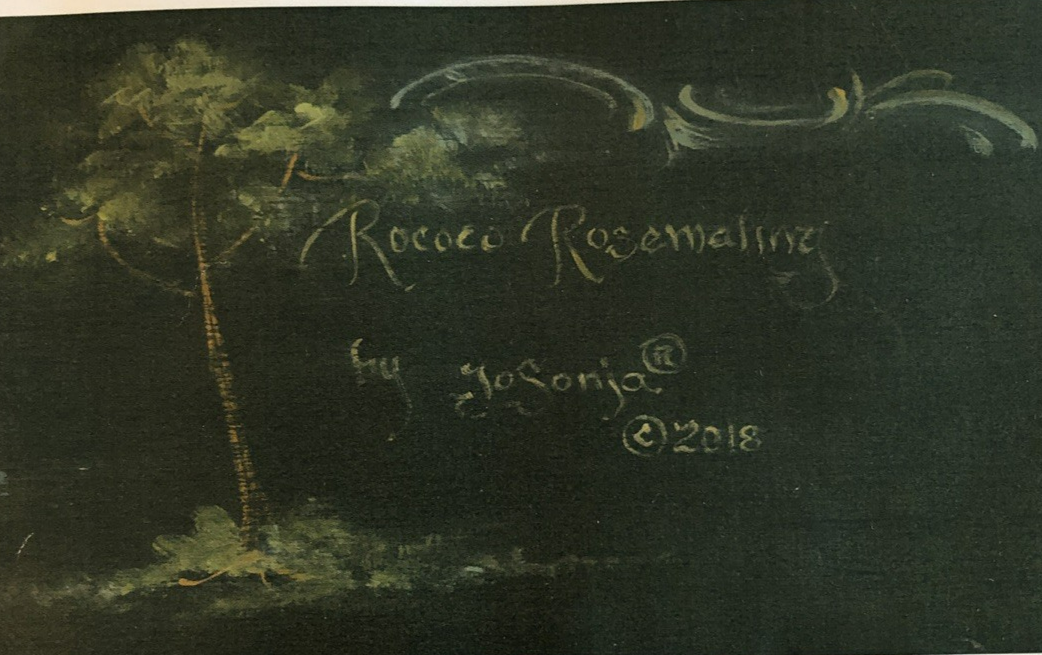 Rococo Rosemaling
by JoSonja®
©2018